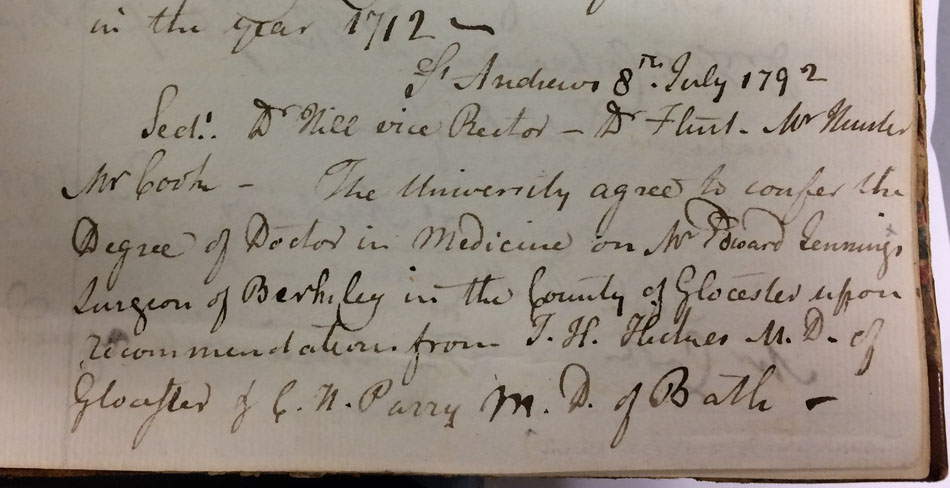 in the year 1712 —
St Andrews 8th. July 1792
Sedt. Dr Hill vice Rector – Dr Flint – Mr Hunter
Mr Cook – The University agree to confer the
Degree of Doctor in Medicine on Mr Edward Jennings
Surgeon of Berkeley in the County of Glocester upon
recommendations from J. H. Hickes M. D. of
Glocester & C. H. Parry M. D. of Bath –